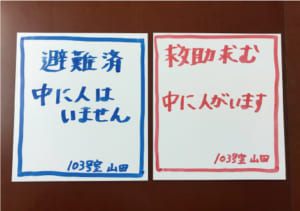 避難済
中に人は
いません
103号室 山田
救助求む
中に人がいます
103号室 山田